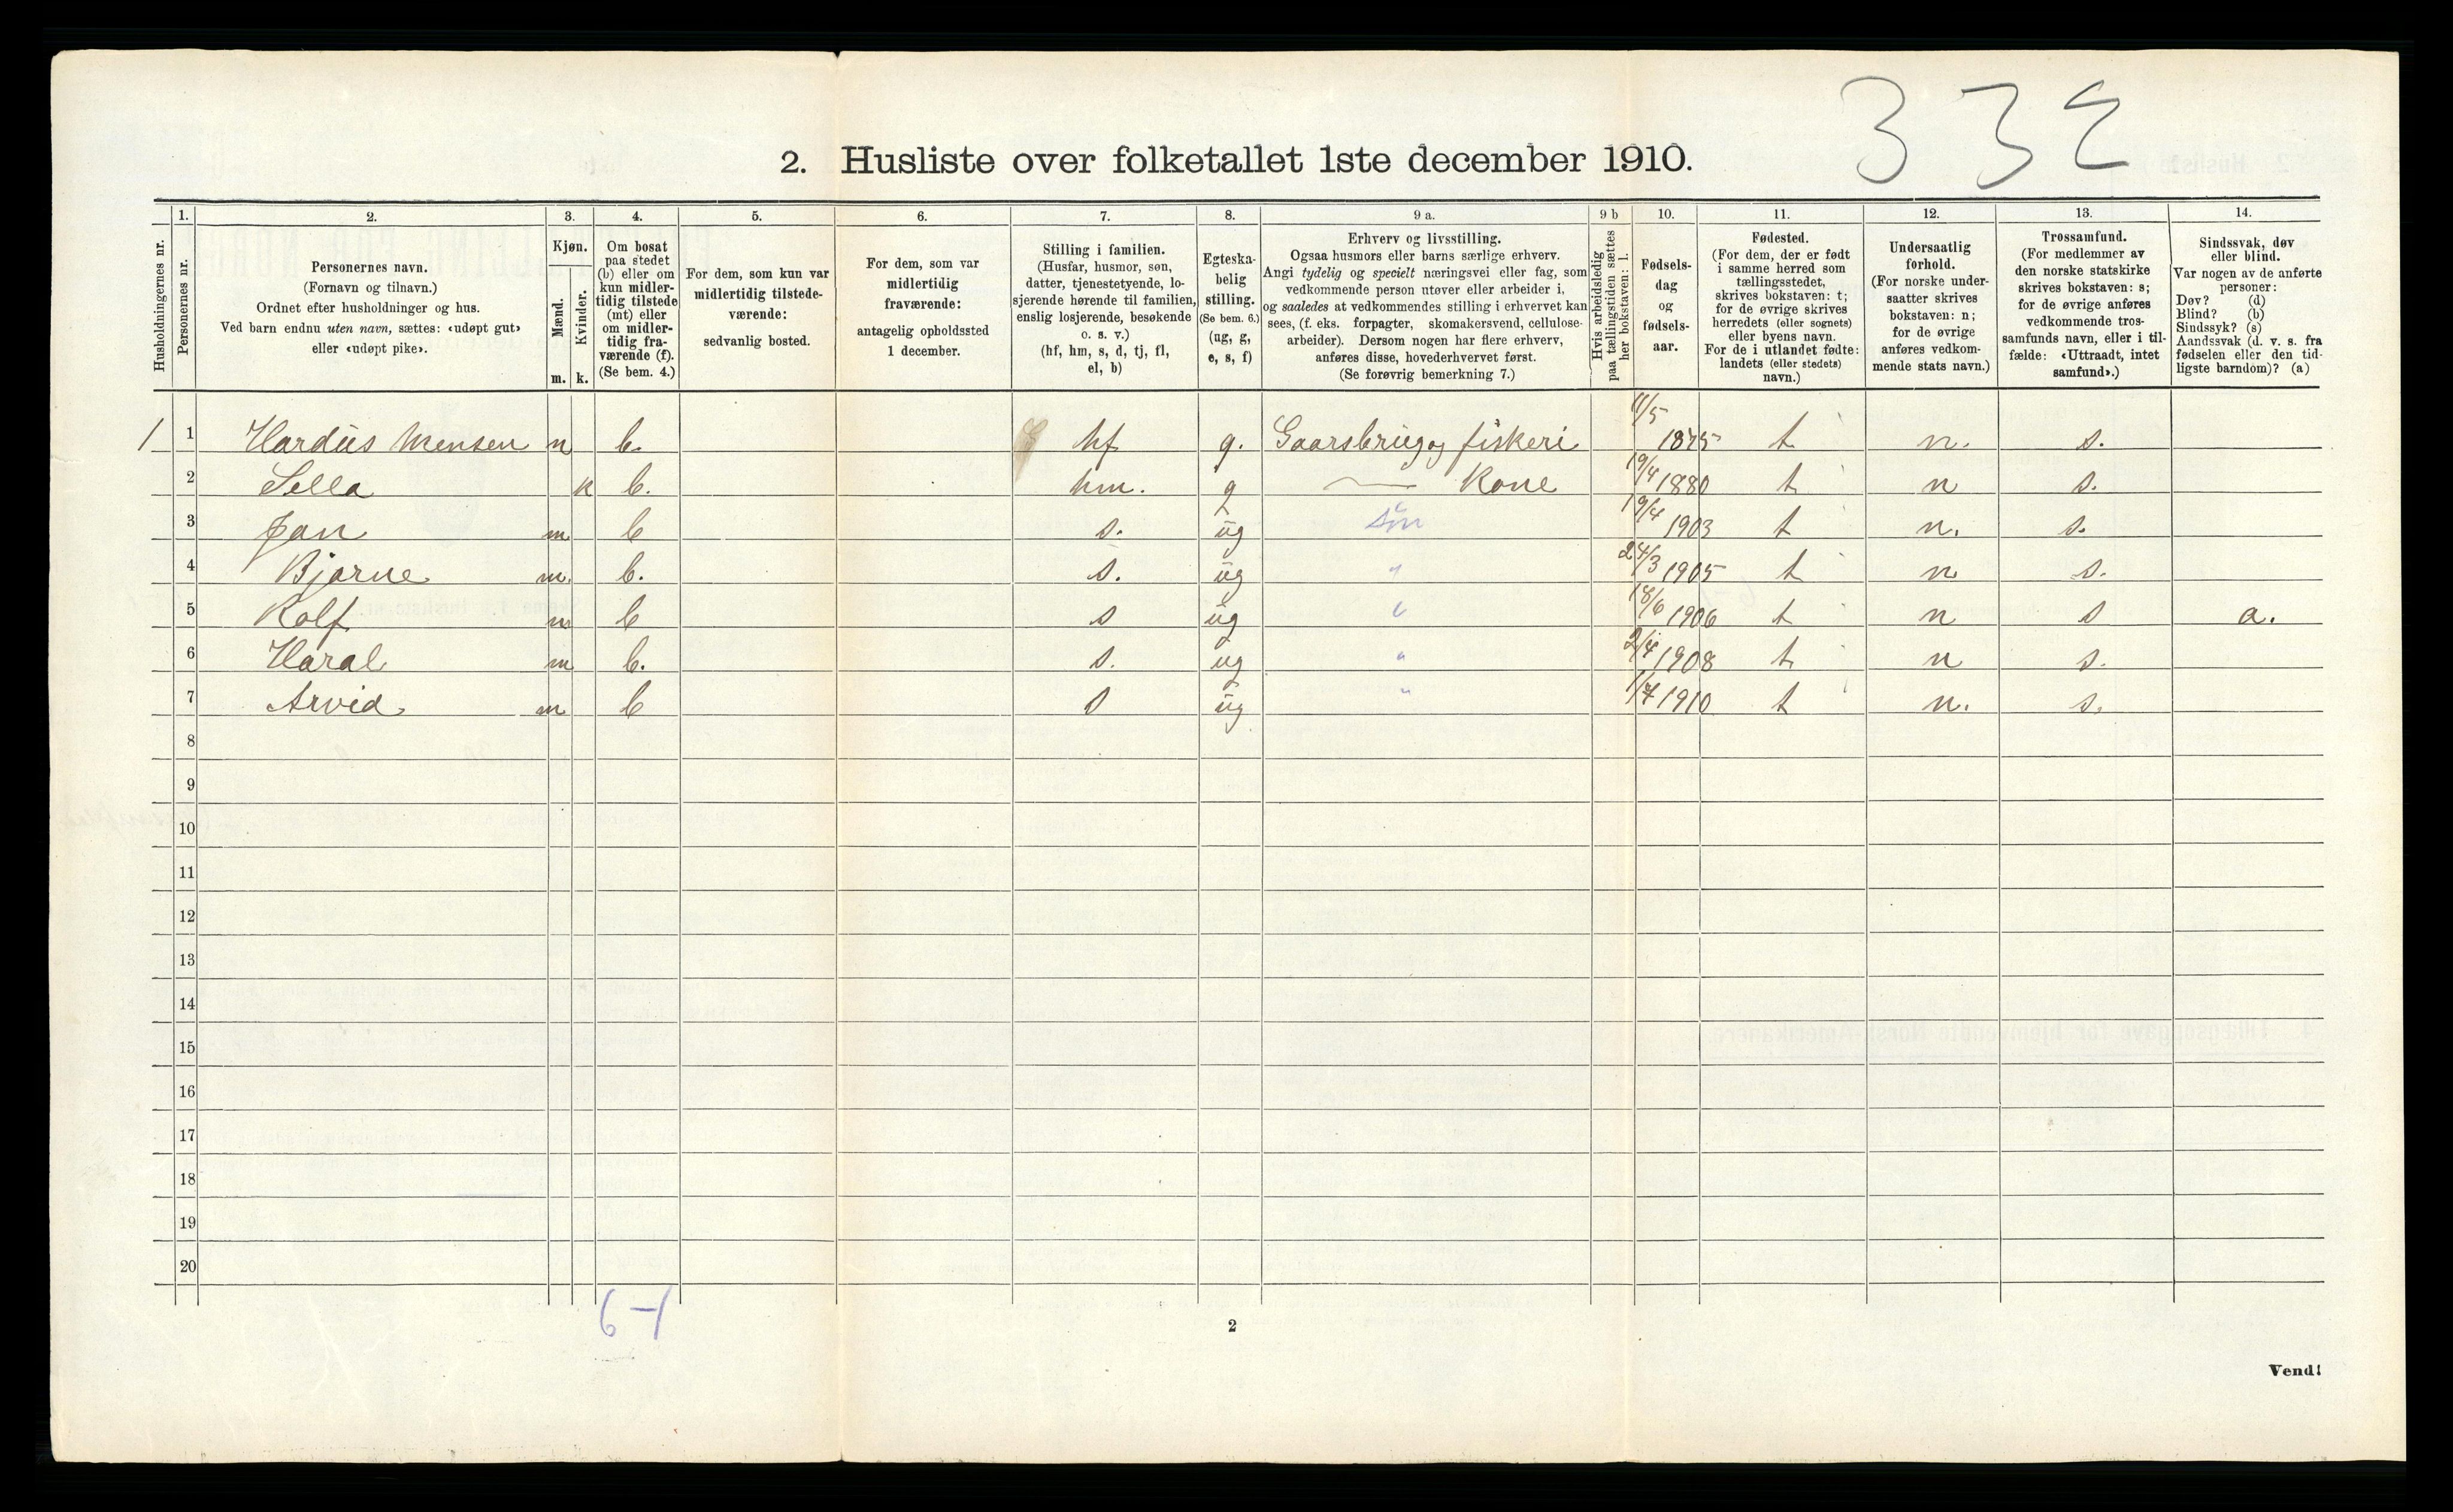 332
2. Husliste over folketallet 1ste december 1910.
Husholdningernes nr.
1. Personernes nr.
2. Personernes navn.
(Fornavn og tilnavn.)
Ordnet efter husholdninger og hus.
Ved barn endnu uten navn, sættes: «udøpt gut»
eller «udøpt pike».
3. Kjøn.
Mænd. m.
Kvinder. k.
4. Om bosat
paa stedet
(b) eller om
kun midler-
tidig tilstede
(mt) eller
om midler-
tidig fra-
værende (f).
(Se bem. 4.)
5. For dem, som kun var
midlertidig tilstede-
værende:
sedvanlig bosted.
6. For dem, som var
midlertidig
fraværende:
antagelig opholdssted
1 december.
7. Stilling i familien.
(Husfar, husmor, søn,
datter, tjenestetyende, lo-
sjerende hørende til familien,
enslig losjerende, besøkende
o. s. v.)
(hf, hm, s, d, tj, fl,
el, b)
8. Egteska-
belig
stilling.
(Se bem. 6.)
(ug, g,
e, s, f)
9 a. Erhverv og livsstilling.
Ogsaa husmors eller barns særlige erhverv.
Angi tydelig og specielt næringsvei eller fag, som
vedkommende person utøver eller arbeider i,
og saaledes at vedkommendes stilling i erhvervet kan
sees, (f. eks. forpagter, skomakersvend, cellulose-
arbeider). Dersom nogen har flere erhverv,
anføres disse, hovederhvervet først.
(Se forøvrig bemerkning 7.)
9 b Hvis arbeidsledig
paa tællingstiden sættes
her bokstaven: l.
10. Fødsels-
dag
og
fødsels-
aar.
11. Fødested.
(For dem, der er født
i samme herred som
tællingsstedet,
skrives bokstaven: t;
for de øvrige skrives
herredets (eller sognets)
eller byens navn.
For de i utlandet fødte:
landets (eller stedets)
navn.)
12. Undersaatlig
forhold.
(For norske under-
saatter skrives
bokstaven: n;
for de øvrige
anføres vedkom-
mende stats navn.)
13. Trossamfund.
(For medlemmer av
den norske statskirke
skrives bokstaven: s;
for de øvrige anføres
vedkommende tros-
samfunds navn, eller i til-
fælde: «Uttraadt, intet
samfund».)
14. Sindssvak, døv
eller blind.
Var nogen av de anførte
personer:
Døv? (d)
Blind? (b)
Sindssyk? (s)
Aandssvak (d. v. s. fra
fødselen eller den tid-
ligste barndom)? (a)
1 1 Hardús Mensen m b. hf g. Gaarsbrug og fiskeri 11/5 1875 t n. s.
2 Sella k b. hm. g — Kone 19/4 1880 t n s.
3 Jan m b s. ug søn 19/4 1903 t n. s.
4 Bjarne m. b. s. ug " 24/3 1905 t n s.
5 Rolf m b s ug " 18/6 1906 t n s a.
6 Haral m b. s. ug " 2/4 1908 t n s.
7 Arvid m b s ug " 1/7 1910 t n. s.
8
9
10
11
12
13
14
15
16
17
18
19
20
6-1
2
Vend!